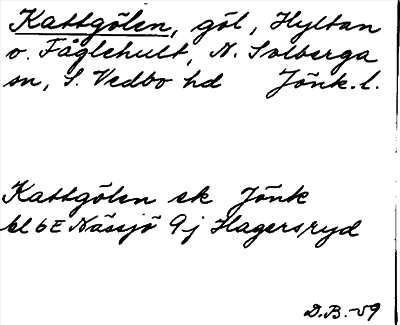 Kattgölen, göl, Hyltan
o. Fåglehult, N. Solberga
sn, S. Vedbo hd Jönk. l.
Kattgölen ek Jönk
bl 6E Nässjö 9j Hagersryd
D.B.-59